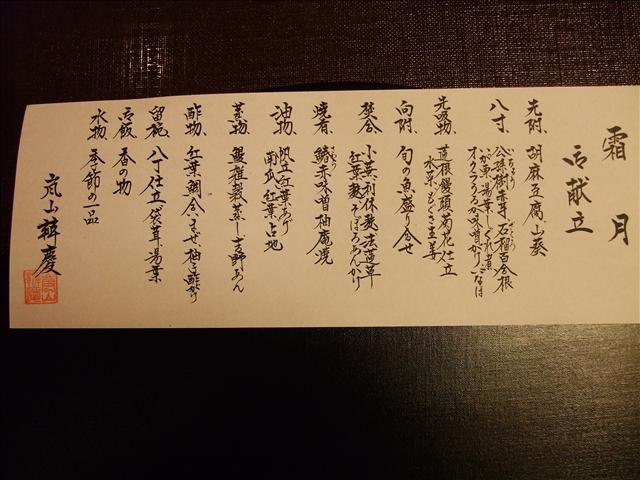 霜月
御献立
先附、胡麻豆腐、山葵
八寸、公孫樹赤芋、石榴百合根
いか東湯葉、しぐれ煮
先吸物、蓮根饅頭菊花仕立
水菜、もみぢ生姜
向附、旬の魚盛り合せ
焚合、小蕪、利休麩、法蓮草
紅葉麩、そぼろあんかけ
焼肴、鰆赤味噌柚庵焼
油物、帆立紅葉あげ
南瓜、紅葉、占地
蒸物、鰻雑穀蒸し、吉野あん
酢物、紅葉鯛、合まぜ、柚き酢かけ
留椀、八丁仕立、袋茸、湯葉
御飯、香の物
水物、季節の一品
嵐山辨慶